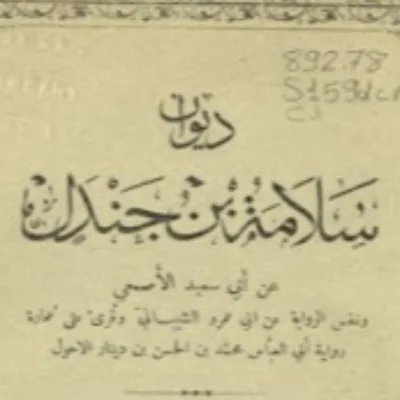 892.78
S159dc
ديوان
سَلَامَة بْن جَنْدَل
عن أبي سعيد الأصمعي
ونفس الرواية عن ابي عمرو الشيباني وقرئ على عمارة
رواية أبي العباس محمد بن الحسن بن دينار الاحول